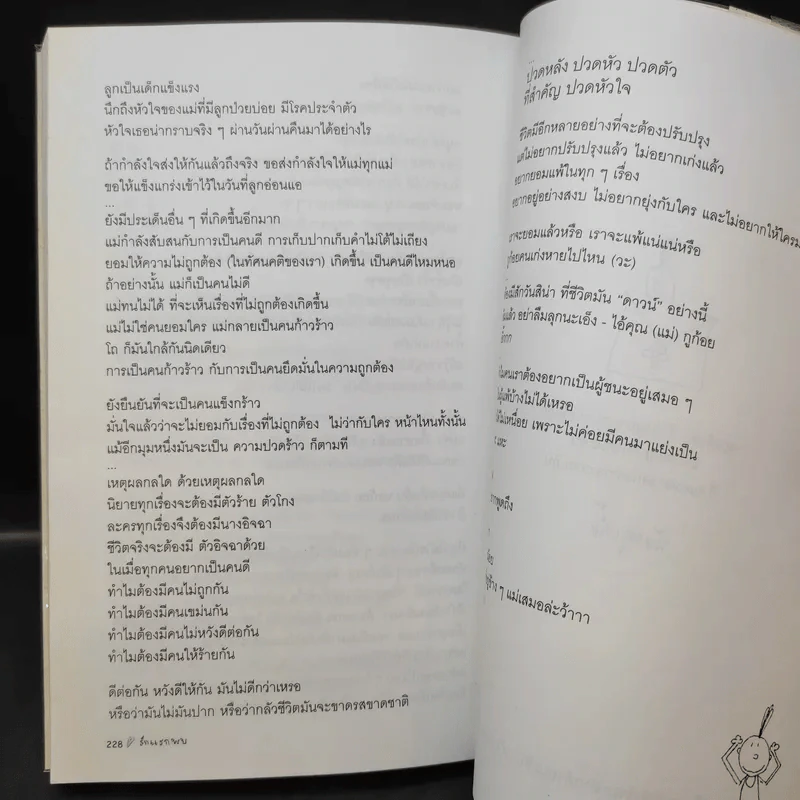 ลูกเป็นเด็กแข็งแรง
นึกถึงหัวใจของแม่ที่มีลูกป่วยบ่อย มีโรคประจำตัว
หัวใจเธอน่ากราบจริง ๆ ผ่านวันผ่านคืนมาได้อย่างไร
ถ้ากำลังใจส่งให้กันแล้วถึงจริง ขอส่งกำลังใจให้แม่ทุกแม่
ขอให้แข็งแกร่งเข้าไว้ในวันที่ลูกอ่อนแอ
...
ยังมีประเด็นอื่น ๆ ที่เกิดขึ้นอีกมาก
แม่กำลังสับสนกับการเป็นคนดี การเก็บปากเก็บคำไม่โต้ไม่เถียง
ยอมให้ความไม่ถูกต้อง (ในทัศนคติของเรา) เกิดขึ้น เป็นคนดีไหมหนอ
ถ้าอย่างนั้น แม่ก็เป็นคนไม่ดี
แม่ทนไม่ได้ ที่จะเห็นเรื่องที่ไม่ถูกต้องเกิดขึ้น
แม่ไม่ใช่คนยอมใคร แม่กลายเป็นคนก้าวร้าว
โถ ก็มันใกล้กันนิดเดียว
การเป็นคนก้าวร้าว กับการเป็นคนยึดมั่นในความถูกต้อง
ยังยืนยันที่จะเป็นคนแข็งกร้าว
มั่นใจแล้วว่าจะไม่ยอมกับเรื่องที่ไม่ถูกต้อง ไม่ว่ากับใคร หน้าไหนทั้งนั้น
แม้อีกมุมหนึ่งมันจะเป็น ความปวดร้าว ก็ตามที
...
เหตุผลกลใด ด้วยเหตุผลกลใด
นิยายทุกเรื่องจะต้องมีตัวร้าย ตัวโกง
ละครทุกเรื่องจึงต้องมีนางอิจฉา
ชีวิตจริงจะต้องมี ตัวอิจฉาด้วย
ในเมื่อทุกคนอยากเป็นคนดี
ทำไมต้องมีคนไม่ถูกกัน
ทำไมต้องมีคนเขม่นกัน
ทำไมต้องมีคนไม่หวังดีต่อกัน
ทำไมต้องมีคนให้ร้ายกัน
ดีต่อกัน หวังดีให้กัน มันไม่ดีกว่าเหรอ
หรือว่ามันไม่มันปาก หรือว่ากลัวชีวิตมันจะขาดรสขาดชาติ
228 รักแรกพบ
ปวดหลัง ปวดหัว ปวดตัว
ที่สำคัญ ปวดหัวใจ
ชีวิตมีอีกหลายอย่างที่จะต้องปรับปรุง
แต่ไม่อยากปรับปรุงแล้ว ไม่อยากเก่งแล้ว
อยากยอมแพ้ในทุก ๆ เรื่อง
อยากอยู่อย่างสงบ ไม่อยากยุ่งกับใคร และไม่อยากให้ใครม
เราจะยอมแล้วหรือ เราจะแพ้แน่แน่หรือ
คนเก่งหายไปไหน (วะ)
มีสักวันสิน่า ที่ชีวิตมัน "ดาวน์" อย่างนี้
แล้ว อย่าลืมลุกนะเอ็ง - ไอ้คุณ (แม่) กูก้อย
คนเราต้องอยากเป็นผู้ชนะอยู่เสมอ ๆ
แพ้บ้างไม่ได้เหรอ
ไม่เหนื่อย เพราะไม่ค่อยมีคนมาแย่งเป็น
พูดถึง
ข้าง ๆ แม่เสมอล่ะว้าาา